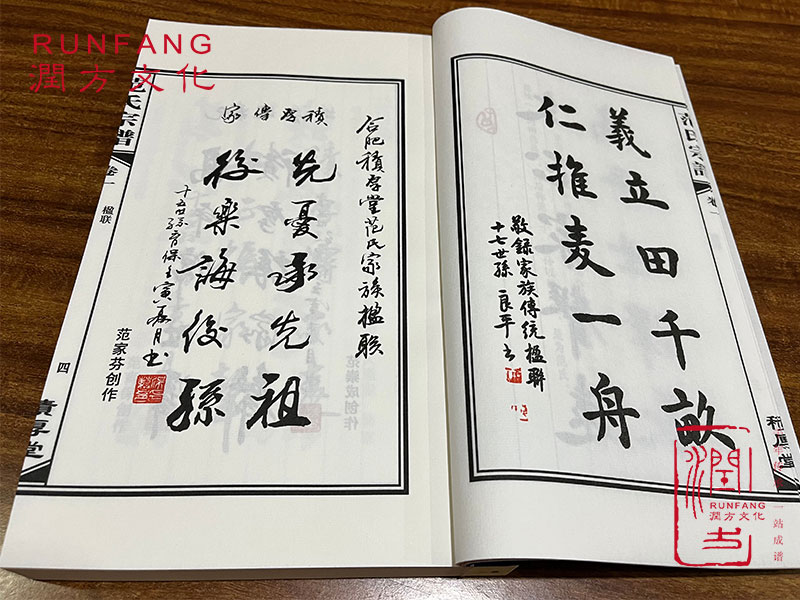 RUNFANG
潤方文化
范氏宗譜
卷一
義立田千畝
仁推麦一舟
敬録家族傳統楹聯
十七世孫 良平书
合肥積厚堂范氏家族楹联
積厚傳家
先憂承先祖
後樂誨後孫
壬寅夏月书
范家芬创作
氏宗譜
卷一
楹联
四
積厚堂
RUNFANG
潤方文化
一站成谱